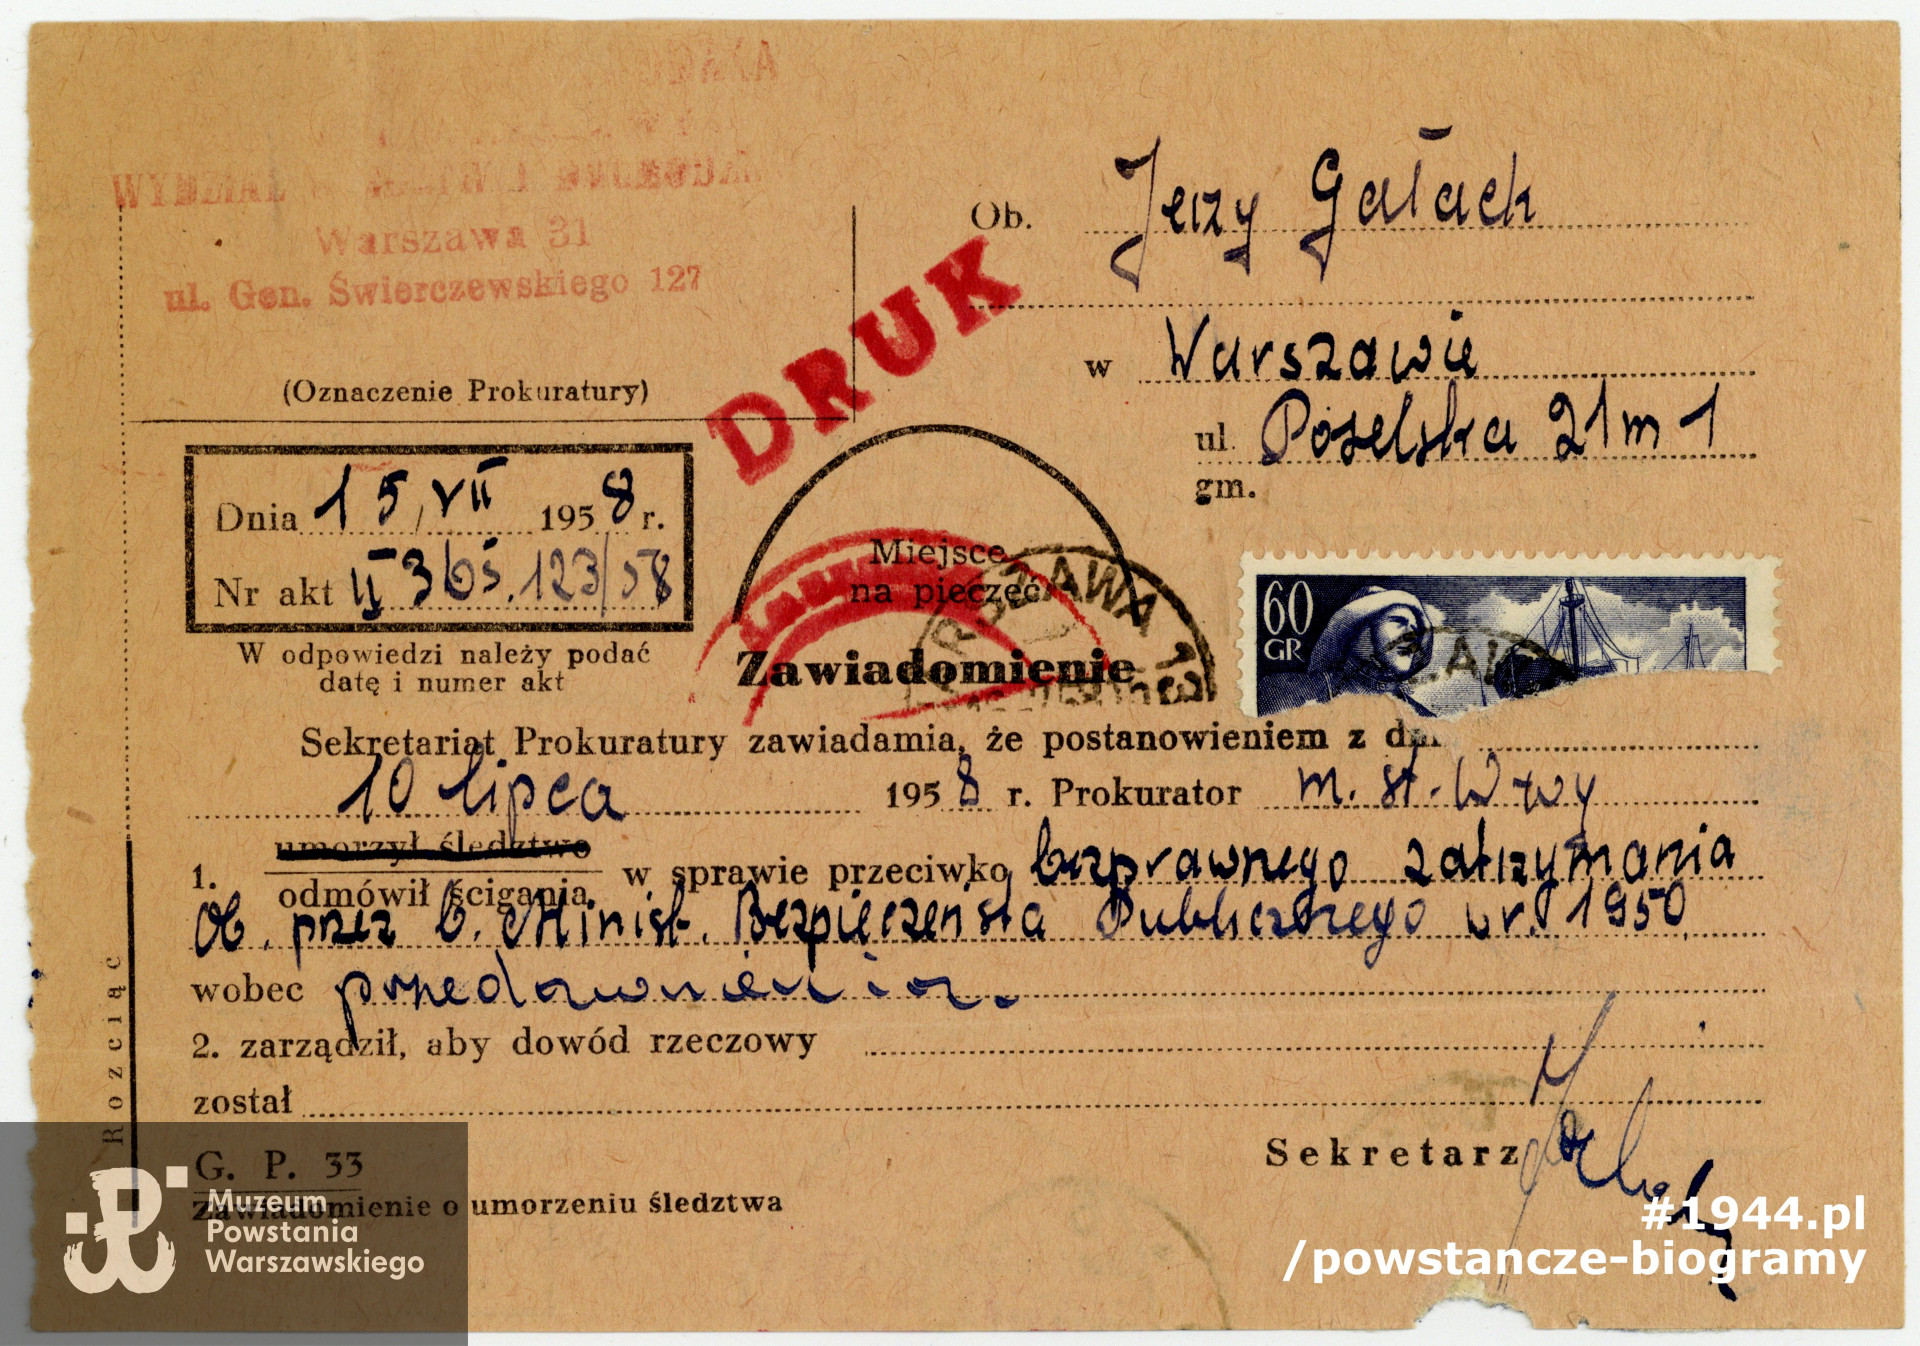 WYDZIAŁ
Warszawa 31
ul. Gen. Świerczewskiego 127
(Oznaczenie Prokuratury)
DRUK
Ob. Jerzy Gałack
w Warszawie
ul. Poselska 21 m 1
gm.
Dnia 15, VII 1958 r.
Nr akt II 3 bś. 123/58
W odpowiedzi należy podać
datę i numer akt
Miejsce
na pieczęć
WARSZAWA
60
GR
Zawiadomienie
Sekretariat Prokuratury zawiadamia, że postanowieniem z dnia
10 lipca 1958 r. Prokurator m. st. W-wy
umorzył śledztwo
1. odmówił ścigania w sprawie przeciwko bezprawnego zatrzymania
Ob. przez b. Minist. Bezpieczeństa Publicznego w r. 1950
wobec przedawnienia.
2. zarządził, aby dowód rzeczowy
został
Rozciąć
Sekretarz
G. P. 33
Zawiadomienie o umorzeniu śledztwa
Muzeum
Powstania
Warszawskiego
#1944.pl
/powstancze-biogramy